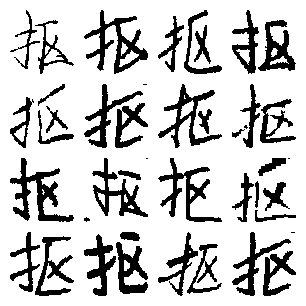 抠抠抠抠
抠抠抠抠
抠抠抠抠
抠抠抠抠